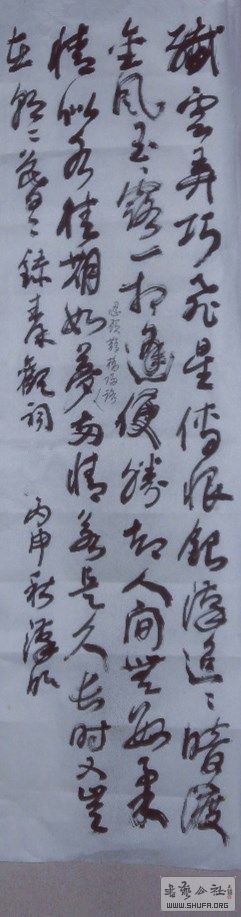 纖雲弄巧飛星傳恨銀漢迢〻暗渡
金風玉露一相逢便勝却人間無數柔
忍顧鵲橋歸路
情似水佳期如夢兩情若是久長时又豈
在朝〻暮〻錄秦觀詞 丙申秋
書藝公社
WWW.SHUFA.ORG